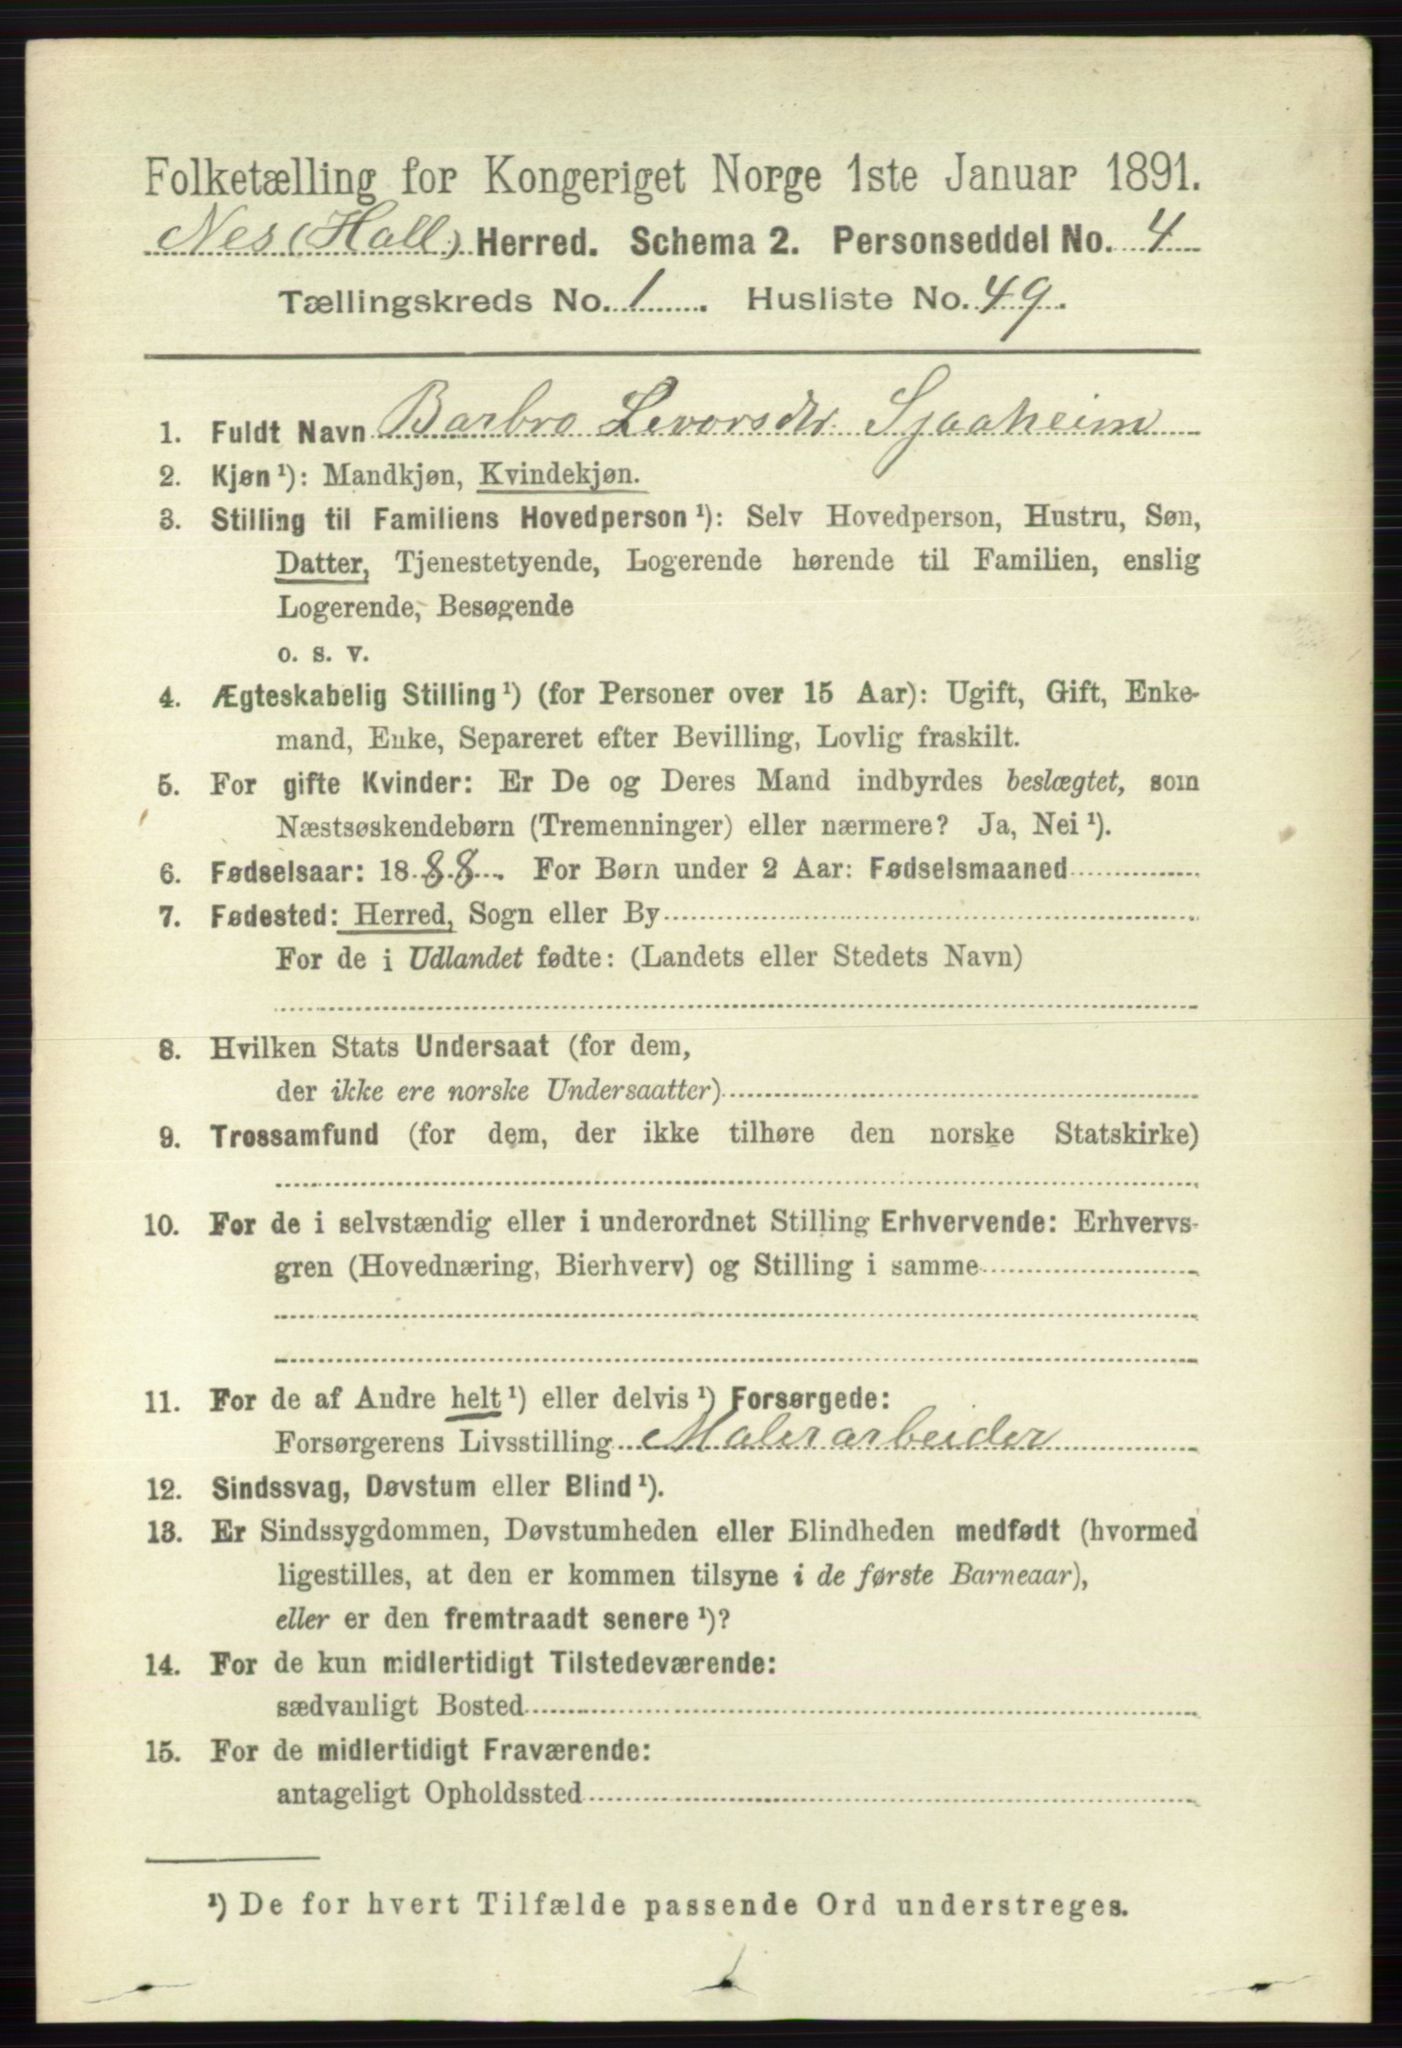 Folketælling for Kongeriget Norge 1ste Januar 1891.
Nes (Hall) Herred. Schema 2. Personseddel No. 4
Tællingskreds No. 1. Husliste No. 49.
1. Fuldt Navn Barbro Levorsdtr. Sjaaheim
2. Kjøn ¹): Mandkjøn, Kvindekjøn.
3. Stilling til Familiens Hovedperson ¹): Selv Hovedperson, Hustru, Søn,
Datter, Tjenestetyende, Logerende hørende til Familien, enslig
Logerende, Besøgende
o. s. v.
4. Ægteskabelig Stilling ¹) (for Personer over 15 Aar): Ugift, Gift, Enke-
mand, Enke, Separeret efter Bevilling, Lovlig fraskilt.
5. For gifte Kvinder: Er De og Deres Mand indbyrdes beslægtet, som
Næstsøskendebørn (Tremenninger) eller nærmere? Ja, Nei ¹).
6. Fødselsaar: 1888. For Børn under 2 Aar: Fødselsmaaned
7. Fødested: Herred, Sogn eller By
For de i Udlandet fødte: (Landets eller Stedets Navn)
8. Hvilken Stats Undersaat (for dem,
der ikke ere norske Undersaatter)
9. Trossamfund (for dem, der ikke tilhøre den norske Statskirke)
10. For de i selvstændig eller i underordnet Stilling Erhvervende: Erhvervs-
gren (Hovednæring, Bierhverv) og Stilling i samme
11. For de af Andre helt ¹) eller delvis ¹) Forsørgede:
Forsørgerens Livsstilling Malerarbeider
12. Sindssvag, Døvstum eller Blind ¹).
13. Er Sindssygdommen, Døvstumheden eller Blindheden medfødt (hvormed
ligestilles, at den er kommen tilsyne i de første Barneaar),
eller er den fremtraadt senere ¹)?
14. For de kun midlertidigt Tilstedeværende:
sædvanligt Bosted
15. For de midlertidigt Fraværende:
antageligt Opholdssted
¹) De for hvert Tilfælde passende Ord understreges.